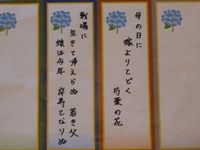 母の日に
嫁よりとどく
芍薬の花
戦場に
生きて帰えらぬ 若き父
娘は今年 卒寿となりぬ